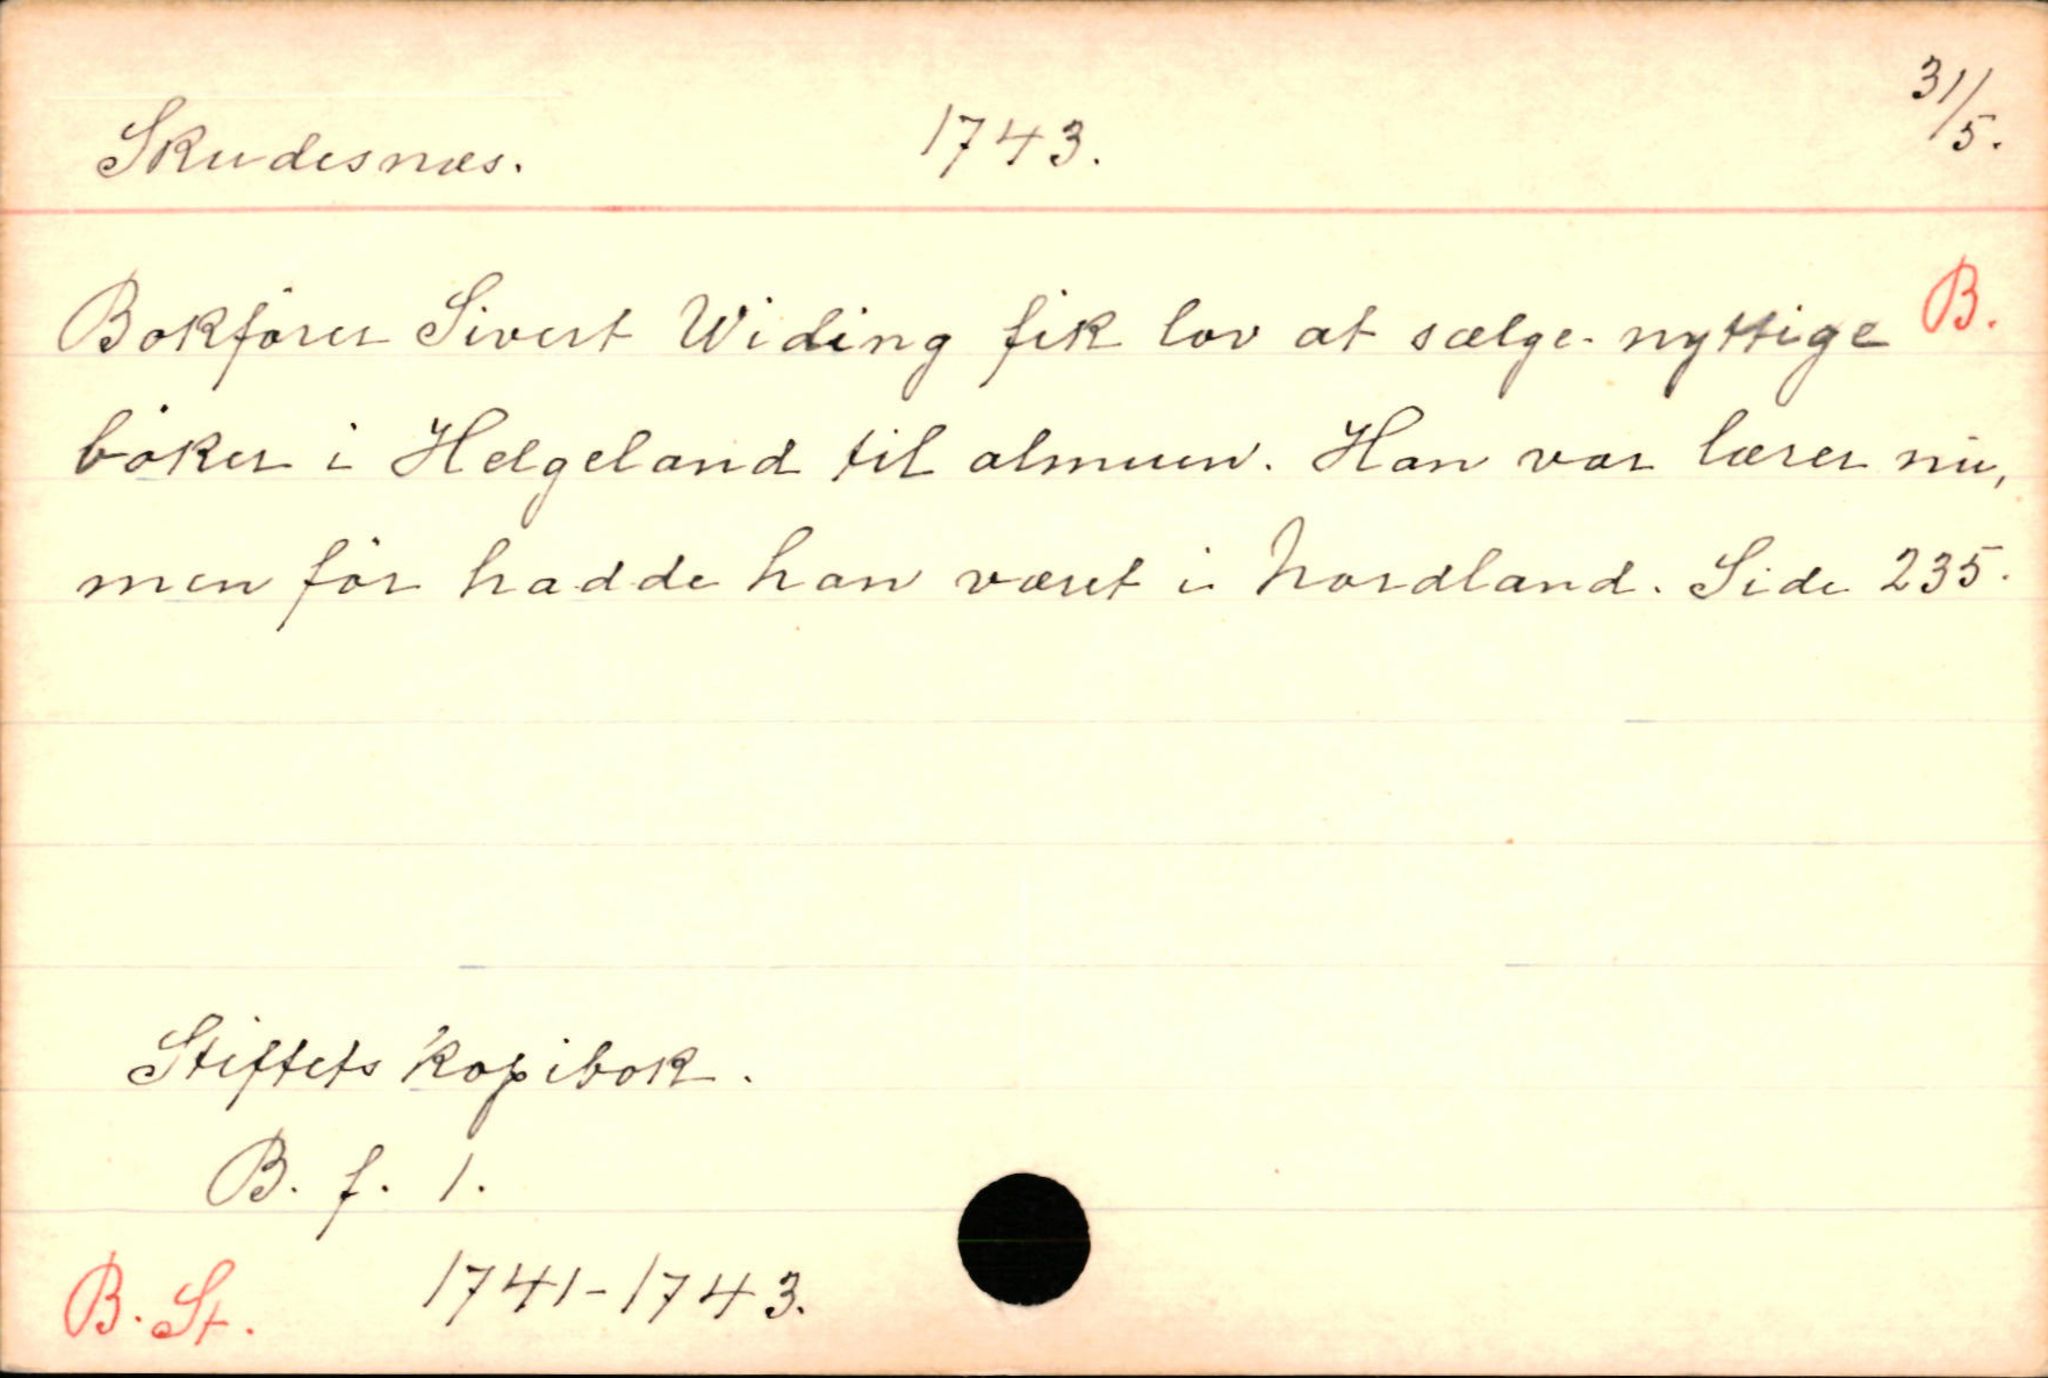 Skudesnæs. 1743. 31/5.
Bokfører Sivert Widing fik lov at sælge nyttige B.
bøker i Helgeland til almuen. Han var lærer nu,
men før hadde han været i Nordland. Side 235.
Stiftets kopibok.
B. f. 1.
B. St. 1741-1743.